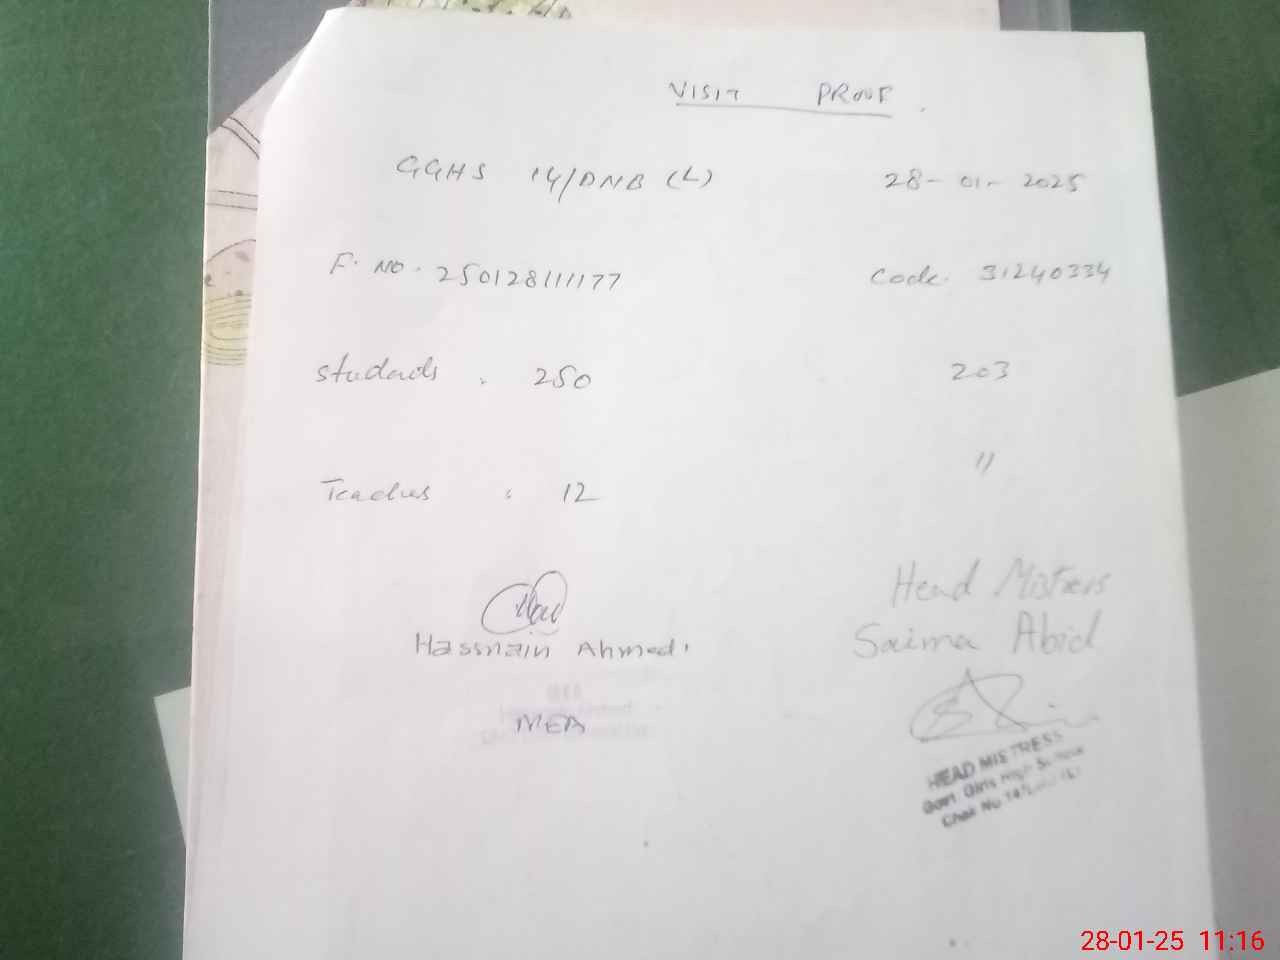 VISIT PROOF.
GGHS 14/DNB (L) 28-01-2025
F. NO. 250128111177 Code. 31240334
Students : 250 203
Teachers : 12 "
Head Mistress
Hassnain Ahmed. Saima Abid
MEA
HEAD MISTRESS
Govt. Girls High School
Chak No. 14/
28-01-25 11:16